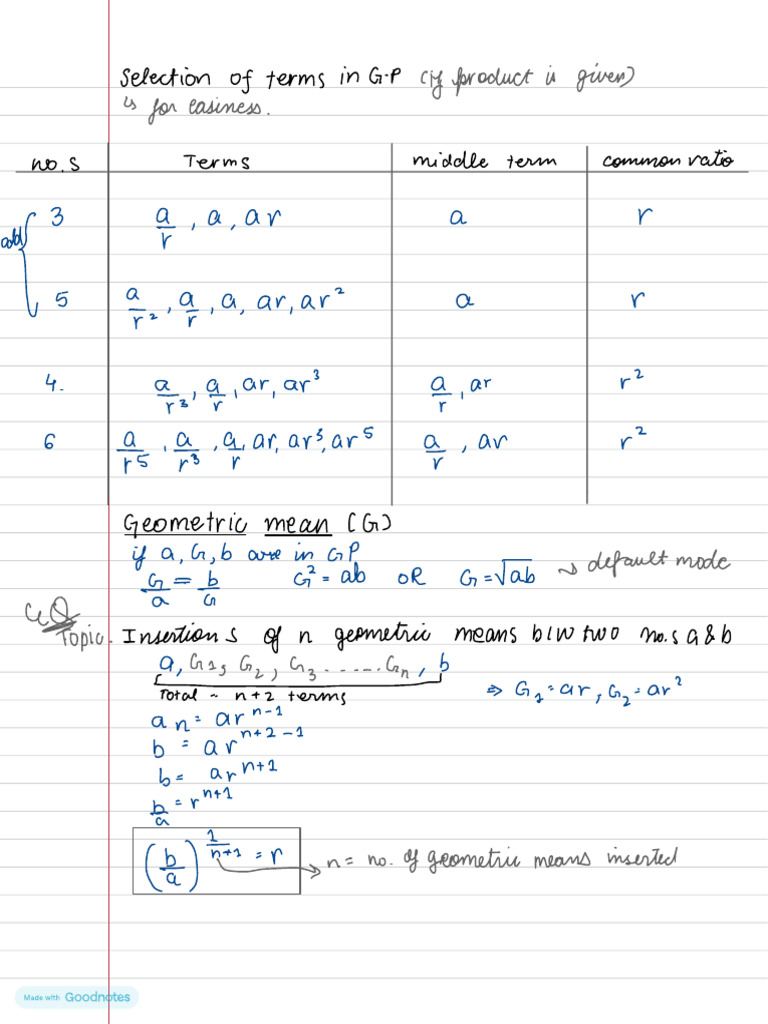 Selection of terms in G.P (if product is given)
↳ for easiness.
no.s Terms middle term common ratio
odd
3 a/r, a, ar a r
5 a/r², a/r, a, ar, ar² a r
4. a/r³, a/r, ar, ar³ a/r, ar r²
6 a/r⁵, a/r³, a/r, ar, ar³, ar⁵ a/r, ar r²
Geometric mean (G)
if a, G, b are in GP
G/a = b/G G² = ab OR G = √ab → default mode
Topic. Insertions of n geometric means b/w two no.s a & b
a, G1, G2, G3 ...... Gn, b
Total ~ n+2 terms ⇒ G1 = ar, G2 = ar²
an = ar^(n-1)
b = ar^(n+2-1)
b = ar^(n+1)
b/a = r^(n+1)
(b/a)^(1/(n+1)) = r → n = no. of geometric means inserted
Made with Goodnotes